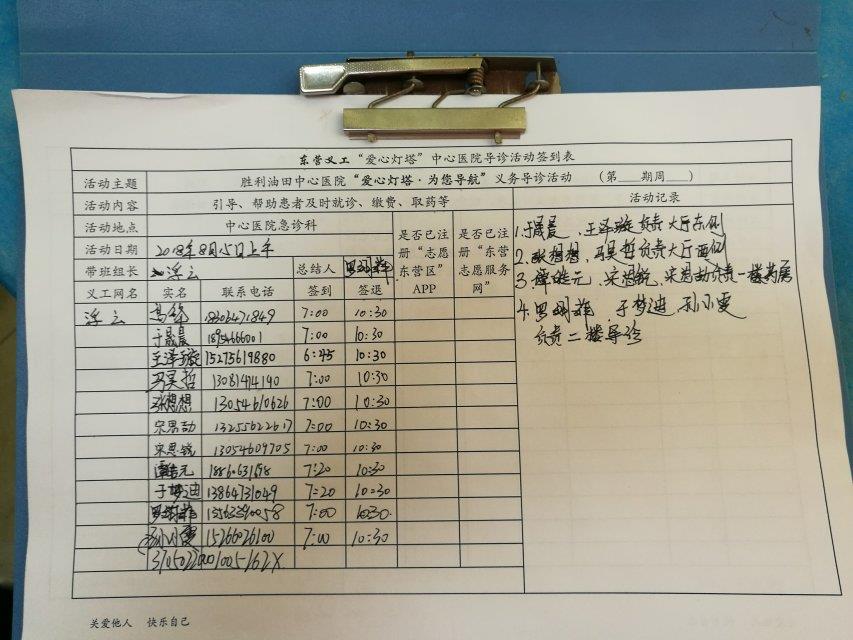 东营义工“爱心灯塔”中心医院导诊活动签到表
活动主题 胜利油田中心医院“爱心灯塔·为您导航”义务导诊活动 (第___期周___)
活动内容 引导、帮助患者及时就诊、缴费、取药等 活动记录
活动地点 中心医院急诊科 是否已注册“志愿东营区”APP 是否已注册“东营志愿服务网”
活动日期 2018年8月15日上午
带班组长 浮云 总结人 罗翊菲
义工网名 实名 联系电话 签到 签退
浮云 7:00 10:30
于晟晨 7:00 10:30
王泽璇 15275619880 6:45 10:30
马昊哲 7:00 10:30
张想想 13054610626 7:00 10:30
宋思劼 13255622617 7:00 10:30
宋思锐 13054609705 7:00 10:30
7:20 10:30
于梦迪 13864731049 7:20 10:30
7:00 10:30
孙小雯 15266026100 7:00 10:30
1.于晟晨、王泽璇负责大厅东侧
2.张想想、马昊哲负责大厅西侧
3. 宋思锐、宋思劼负责一楼药房
4.罗翊菲、于梦迪、孙小雯
负责二楼导诊
关爱他人 快乐自己